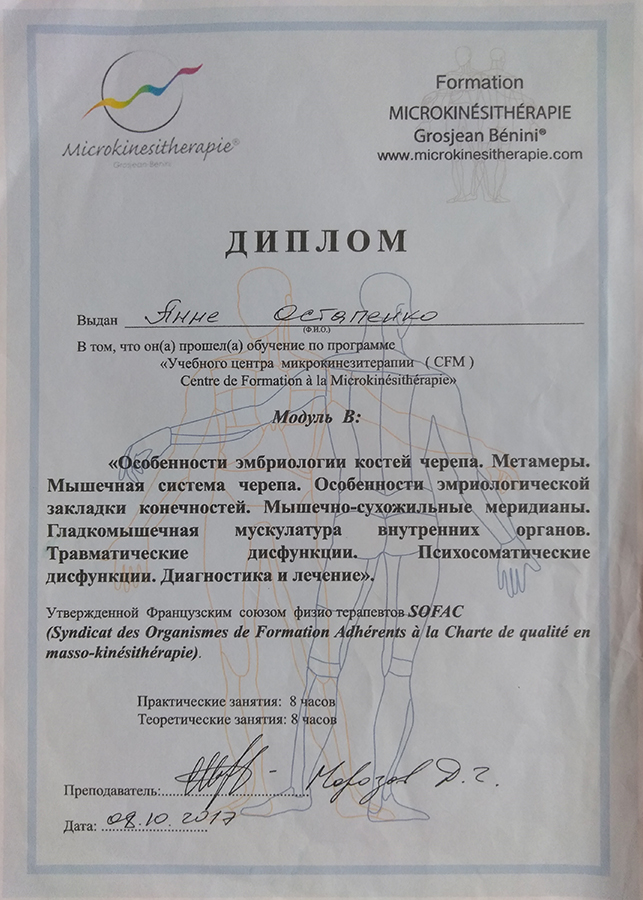 Microkinesitherapie®
Grosjean Bénini
Formation
MICROKINÉSITHÉRAPIE
Grosjean Bénini®
www.microkinesitherapie.com
ДИПЛОМ
Выдан Анне Остапенко
(Ф.И.О.)
В том, что он(а) прошел(а) обучение по программе
«Учебного центра микрокинезитерапии ( CFM )
Centre de Formation à la Microkinésithérapie»
Модуль В:
«Особенности эмбриологии костей черепа. Метамеры.
Мышечная система черепа. Особенности эмриологической
закладки конечностей. Мышечно-сухожильные меридианы.
Гладкомышечная мускулатура внутренних органов.
Травматические дисфункции. Психосоматические
дисфункции. Диагностика и лечение».
Утвержденной Французским союзом физиотерапевтов SOFAC
(Syndicat des Organismes de Formation Adhérents à la Charte de qualité en
masso-kinésithérapie).
Практические занятия: 8 часов
Теоретические занятия: 8 часов
Преподаватель: Морозов Д. Г.
Дата: 08.10.2017